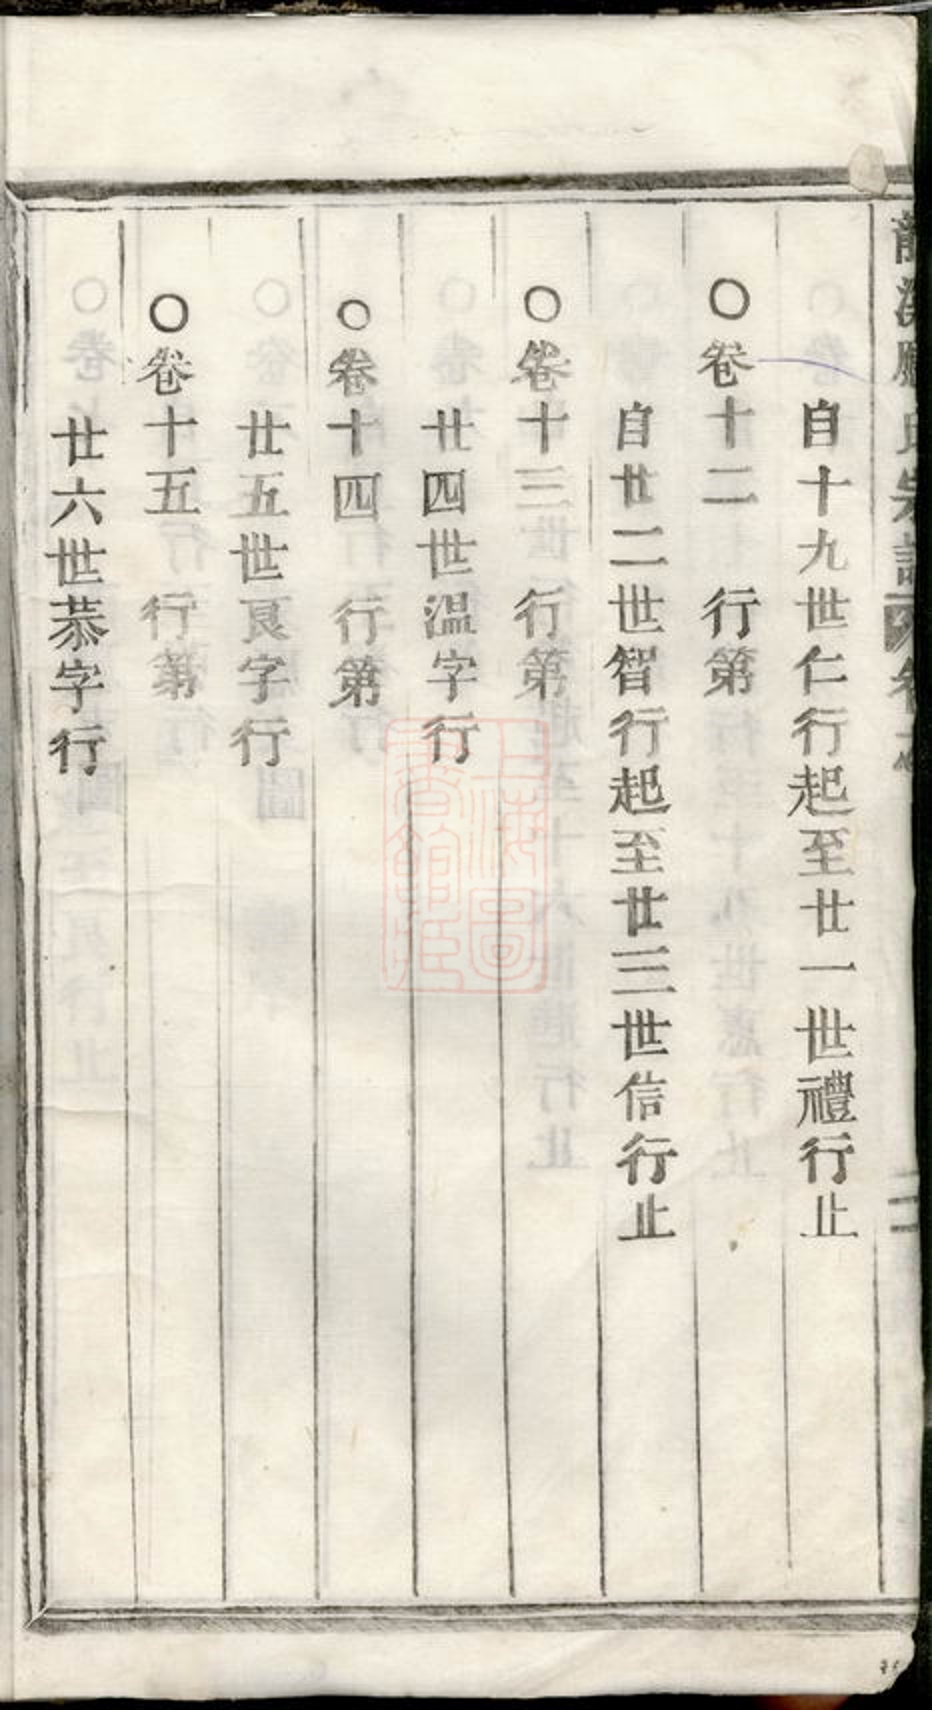 自十九世仁行起至廿一世禮行止
〇卷十二 行第
自廿二世智行起至廿三世信行止
〇卷十三 行第
廿四世溫字行
〇卷十四 行第
廿五世良字行
〇卷十五 行第
廿六世恭字行